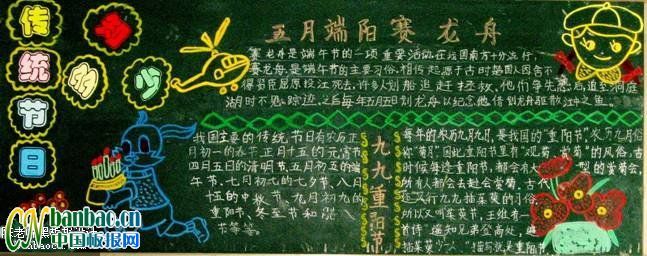 传统节日
知多少
五月端阳赛龙舟
赛龙舟是端午节的一项重要活动,在我国南方十分流行,
赛龙舟,是端午节的主要习俗。相传起源于古时楚国人因舍不
得贤臣屈原投江死去,许多人划船追赶拯救。他们争先恐后,追至洞庭
湖时不见踪迹。之后每年五月五日划龙舟以纪念他。借划龙舟驱散江中之鱼。
我国主要的传统节日有农历正
月初一的春节、正月十五的元宵节
四月五日的清明节、五月初五的端
午节、七月初七的七夕节、八月
十五的中秋节、九月初九的
重阳节、冬至节和
节等等。
九九重阳节
每年的农历九月九日,是我国的"重阳节"农历九月俗
称"菊月"因此重阳节里有"观菊、赏菊"的风俗。古
时候每逢重阳节,都会有
所有人都会去赴会赏菊。古代
还又行九九插茱萸的习俗,
所以又叫茱萸节。王维有一
首诗"遥知兄弟登高处,遍
插茱萸少一人。"描写就是重阳节。
CNbanbao.cn
中国板报网